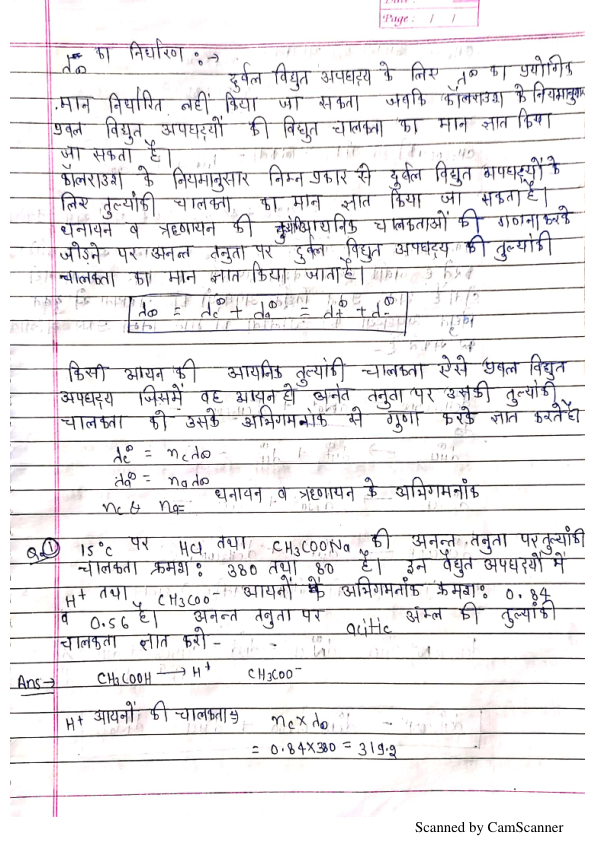 Page: / /
λ∞ का निर्धारण :→
दुर्बल विद्युत अपघट्य के लिए λ∞ का प्रयोगिक
मान निर्धारित नहीं किया जा सकता जबकि कॉलराउश के नियमानुसार
प्रबल विद्युत अपघट्यों की विद्युत चालकता का मान ज्ञात किया
जा सकता है।
कॉलराउश के नियमानुसार निम्न प्रकार से दुर्बल विद्युत अपघट्यों के
लिए तुल्यांकी चालकता का मान ज्ञात किया जा सकता है।
धनायन व ऋणायन की आयनिक चालकताओं की गणना करके
जोडने पर अनन्त तनुता पर दुर्बल विद्युत अपघट्य की तुल्यांकी
चालकता का मान ज्ञात किया जाता है।
λ∞ = λc∞ + λa∞ = λ+∞ + λ-∞
किसी आयन की आयनिक तुल्यांकी चालकता ऐसे प्रबल विद्युत
अपघट्य जिसमें वह आयन हो अनंत तनुता पर उसकी तुल्यांकी
चालकता को उसके अभिगमनांक से गुणा करके ज्ञात करते है।
λc∞ = nc λ∞
λa∞ = na λ∞
nc & na = धनायन व ऋणायन के अभिगमनांक
Q.① 15°C पर HCl तथा CH3COONa की अनन्त तनुता पर तुल्यांकी
चालकता क्रमश: 380 तथा 80 है। इन वैद्युत अपघट्यों में
H+ तथा CH3COO- आयनों के अभिगमनांक क्रमश: 0.84
व 0.56 है। अनन्त तनुता पर acitic अम्ल की तुल्यांकी
चालकता ज्ञात करो -
Ans→ CH3COOH ⟶ H+ CH3COO-
H+ आयनों की चालकता nc × λ∞
= 0.84×380 = 319.2
Scanned by CamScanner